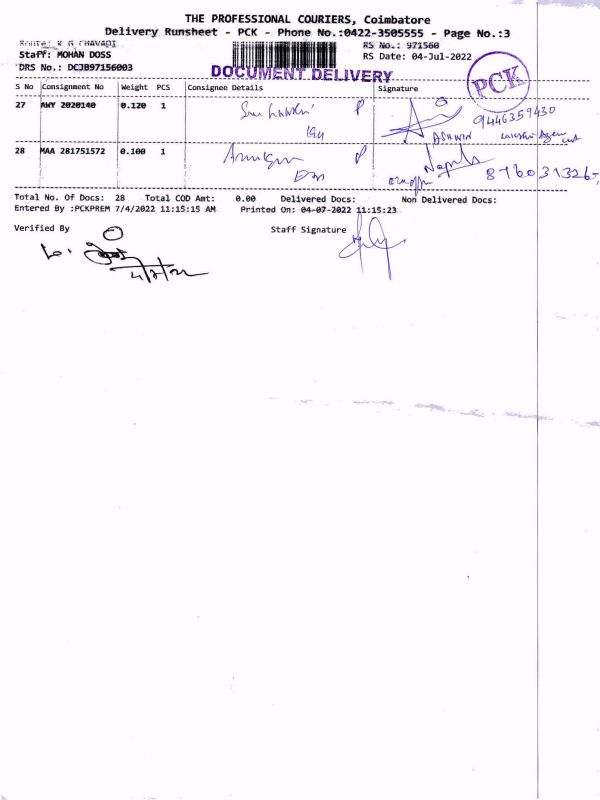 THE PROFESSIONAL COURIERS, Coimbatore
Delivery Runsheet - PCK - Phone No.:0422-3505555 - Page No.:3
Route: K G CHAVADI
RS No.: 971560
Staff: MOHAN DOSS
RS Date: 04-Jul-2022
DRS No.: DCJB97156003
DOCUMENT DELIVERY
PCK
S No Consignment No Weight PCS Consignee Details Signature
27 AWY 2020140 0.120 1 P 9446359430
ASHWIN
28 MAA 281751572 0.100 1 P
Total No. Of Docs: 28 Total COD Amt: 0.00 Delivered Docs: Non Delivered Docs:
Entered By :PCKPREM 7/4/2022 11:15:15 AM Printed On: 04-07-2022 11:15:23
Verified By Staff Signature